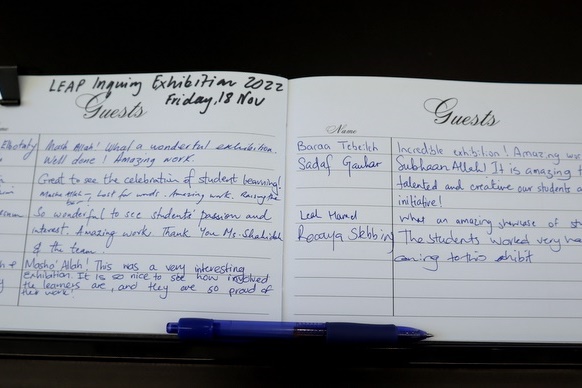 LEAP Inquiry Exhibition 2022
Friday, 18 Nov
Guests
Mash Allah! What a wonderful exhibition.
Well done! Amazing work.
Great to see the celebration of student learning!
Masha Allah - Lost for words. Amazing work. Raising the
bar!
So wonderful to see students' passion and
interest. Amazing work. Thank You Ms. Shahidah
& the team
Masha' Allah! This was a very interesting
exhibition. It is so nice to see how involved
the learners are, and they are so proud of
their work!
Guests
Name
Baraa Incredible exhibition! Amazing
Sadaf Gauhar Subhaan Allah! It is amazing
talented and creative our students
initiative!
Leah Hamed What an amazing showcase of
The students worved very
to this exhibit